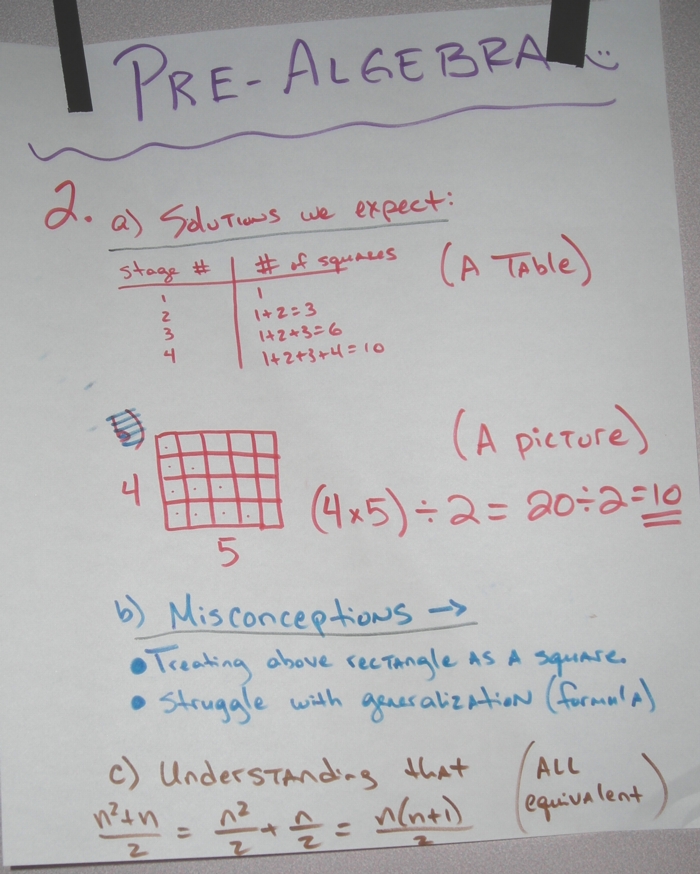 PRE-ALGEBRA
2. a) Solutions we expect:
Stage # # of squares
(A Table)
1 1
2 1+2=3
3 1+2+3=6
4 1+2+3+4=10
b)
(A picture)
4
(4×5)÷2= 20÷2=10
5
b) Misconceptions →
• Treating above rectangle as a square.
• Struggle with generalization (formula)
c) Understanding that (ALL equivalent)
n²+n/2 = n²/2 + n/2 = n(n+1)/2